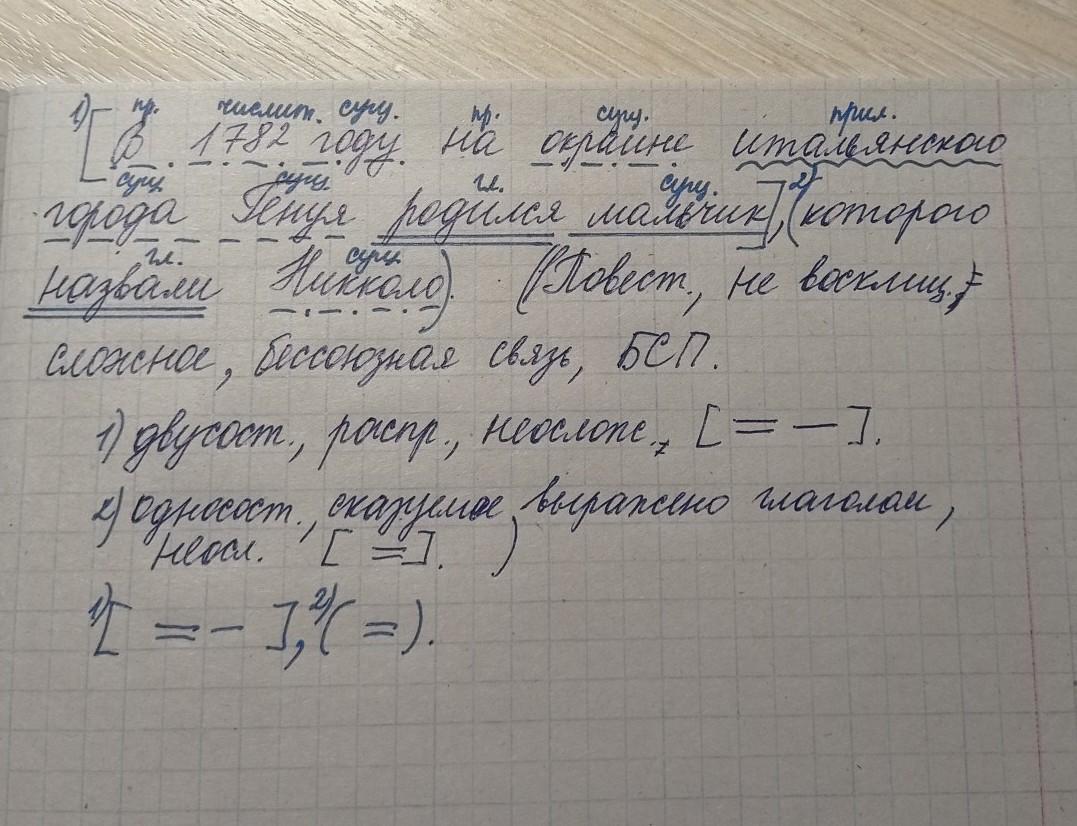 пр. числит. сущ. пр. сущ. прил.
1) [В 1782 году на окраине итальянского
сущ. сущ. гл. сущ.
города Генуя родился мальчик], 2) (которого
гл. сущ.
назвали Никколо). (Повест., не восклиц.,
сложное, бессоюзная связь, БСП.
1) двусост., распр., неослож., [= –].
2) односост., сказуемое выражено глаголом,
неосл. [=]. )
1) [= –], 2) (=).